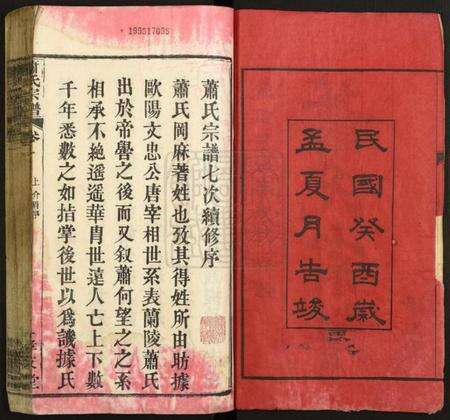 民國癸酉歲
孟夏月告竣
199517035
蕭氏宗譜七次續修序
蕭氏岡麻著姓也攷其得姓所由昉據
歐陽文忠公唐宰相世系表蘭陵蕭氏
出於帝嚳之後而又叙蕭何望之之系
相承不絶遥遥華胄世遠人亡上下數
千年悉數之如指掌後世以爲譏據氏
蕭氏宗譜